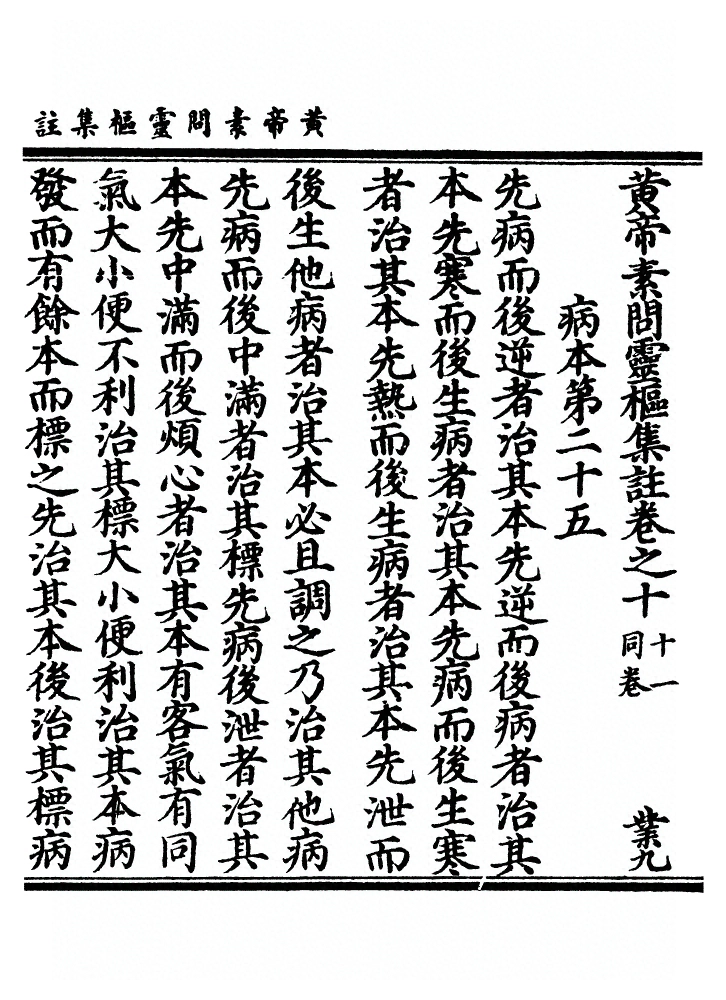 黃帝素問靈樞集註
黃帝素問靈樞集註卷之十 十一同卷 業九
病本第二十五
先病而後逆者治其本先逆而後病者治其
本先寒而後生病者治其本先病而後生寒
者治其本先熱而後生病者治其本先泄而
後生他病者治其本必且調之乃治其他病
先病而後中滿者治其標先病後泄者治其
本先中滿而後煩心者治其本有客氣有同
氣大小便不利治其標大小便利治其本病
發而有餘本而標之先治其本後治其標病